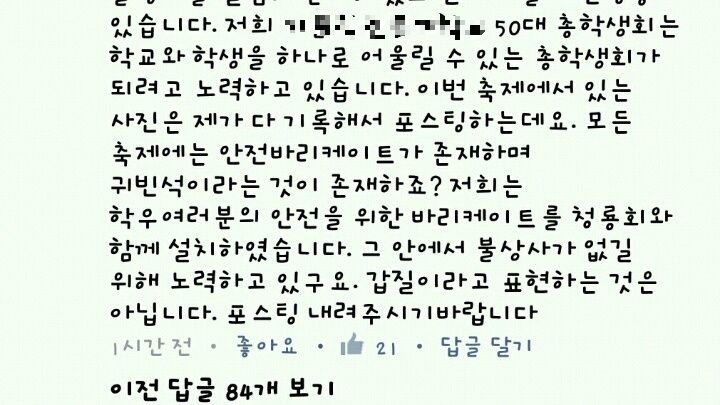 있습니다. 저희 50대 총학생회는
학교와 학생을 하나로 어울릴 수 있는 총학생회가
되려고 노력하고 있습니다. 이번 축제에서 있는
사진은 제가 다 기록해서 포스팅하는데요. 모든
축제에는 안전바리케이트가 존재하며
귀빈석이라는 것이 존재하죠? 저희는
학우여러분의 안전을 위한 바리케이트를 청룡회와
함께 설치하였습니다. 그 안에서 불상사가 없길
위해 노력하고 있구요. 갑질이라고 표현하는 것은
아닙니다. 포스팅 내려주시기바랍니다
1시간 전 • 좋아요 • 21 • 답글 달기
이전 답글 84개 보기